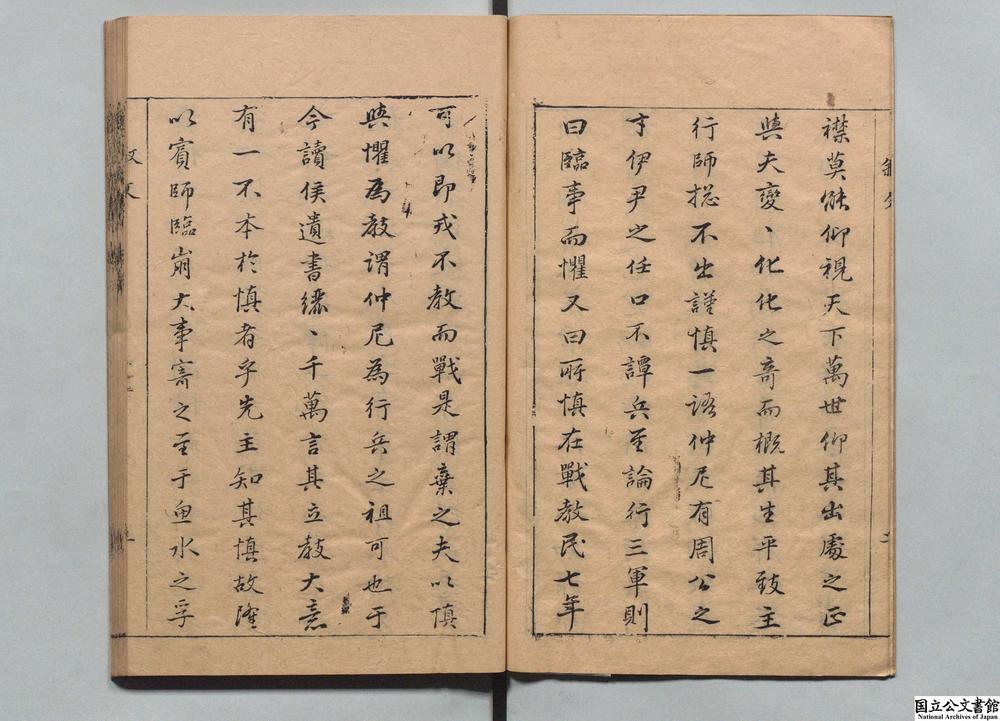 襟莫能仰視天下萬世仰其出處之正
與夫變、化化之奇而概其生平致主
行師揔不出謹慎一語仲尼有周公之
才伊尹之任口不譚兵至論行三軍則
曰臨事而懼又曰所慎在戰教民七年
可以即戎不教而戰是謂棄之夫以慎
與懼為教謂仲尼為行兵之祖可也于
今讀侯遺書纚、千萬言其立教大意
有一不本於慎者乎先主知其慎故隆
以賓師臨崩大事寄之至于魚水之孚
国立公文書館
National Archives of Japan